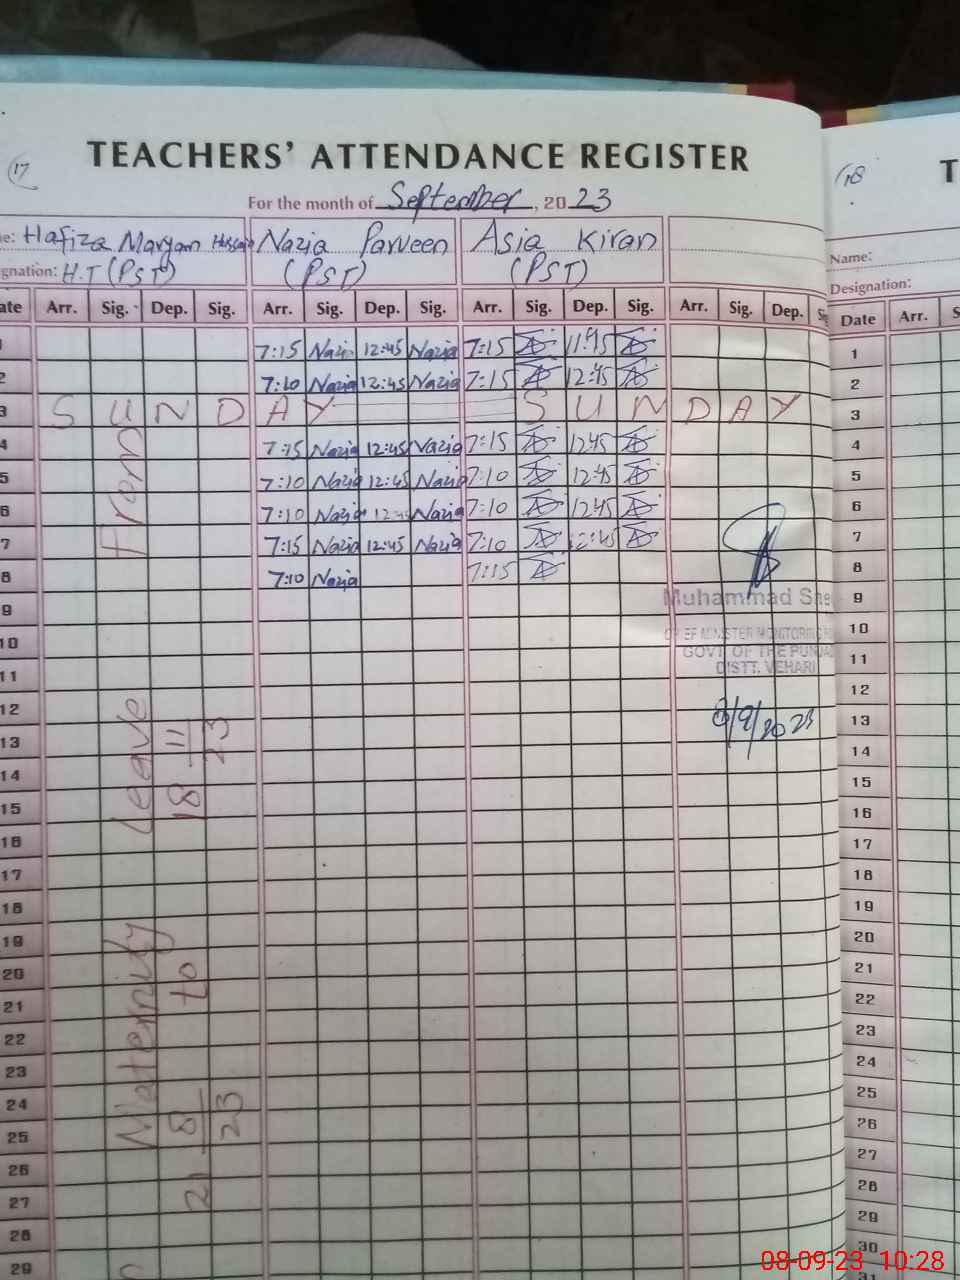 17
TEACHERS' ATTENDANCE REGISTER
For the month of September, 2023
Hafiza Maryam Hussain Nazia Parveen Asia Kiran
gnation: H.T (PST) (PST) (PST)
ate Arr. Sig. Dep. Sig. Arr. Sig. Dep. Sig. Arr. Sig. Dep. Sig. Arr. Sig. Dep.
7:15 Nazia 12:45 Nazia 7:15 11:45
2 7:10 Nazia 12:45 Nazia 7:15 12:45
3 SUNDAY SUNDAY
4 7:15 Nazia 12:45 Nazia 7:15 1245
5 7:10 Nazia 12:45 Nazia 7:10 12:45
6 7:10 Nazia Nazia 7:10 1245
7 7:15 Nazia 12:45 Nazia 7:10 12:45
8 7:10 Nazia 7:15
9
10
11
12
13
14
15
16
17
18
19
20
21
22
23
24
25
26
27
28
29
From
Maternity Leave
21 8/23 to 18 11/23
Muhammad
CHIEF MINISTER MONITORING
GOVT. OF THE PUNJAB
DISTT. VEHARI
8/9/2023
18
T
Name:
Designation:
Date Arr. S
1
2
3
4
5
6
7
8
9
10
11
12
13
14
15
16
17
18
19
20
21
22
23
24
25
26
27
28
29
30
31
08-09-23 10:28